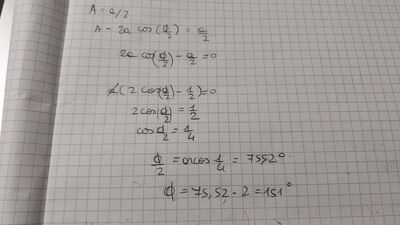 A = a/2
A = 2a cos(ϕ/2) = a/2
2a cos(ϕ/2) - a/2 = 0
a(2 cos(ϕ/2) - 1/2) = 0
2 cos(ϕ/2) = 1/2
cos ϕ/2 = 1/4
ϕ/2 = arcos 1/4 = 75,52°
ϕ = 75,52 · 2 = 151°